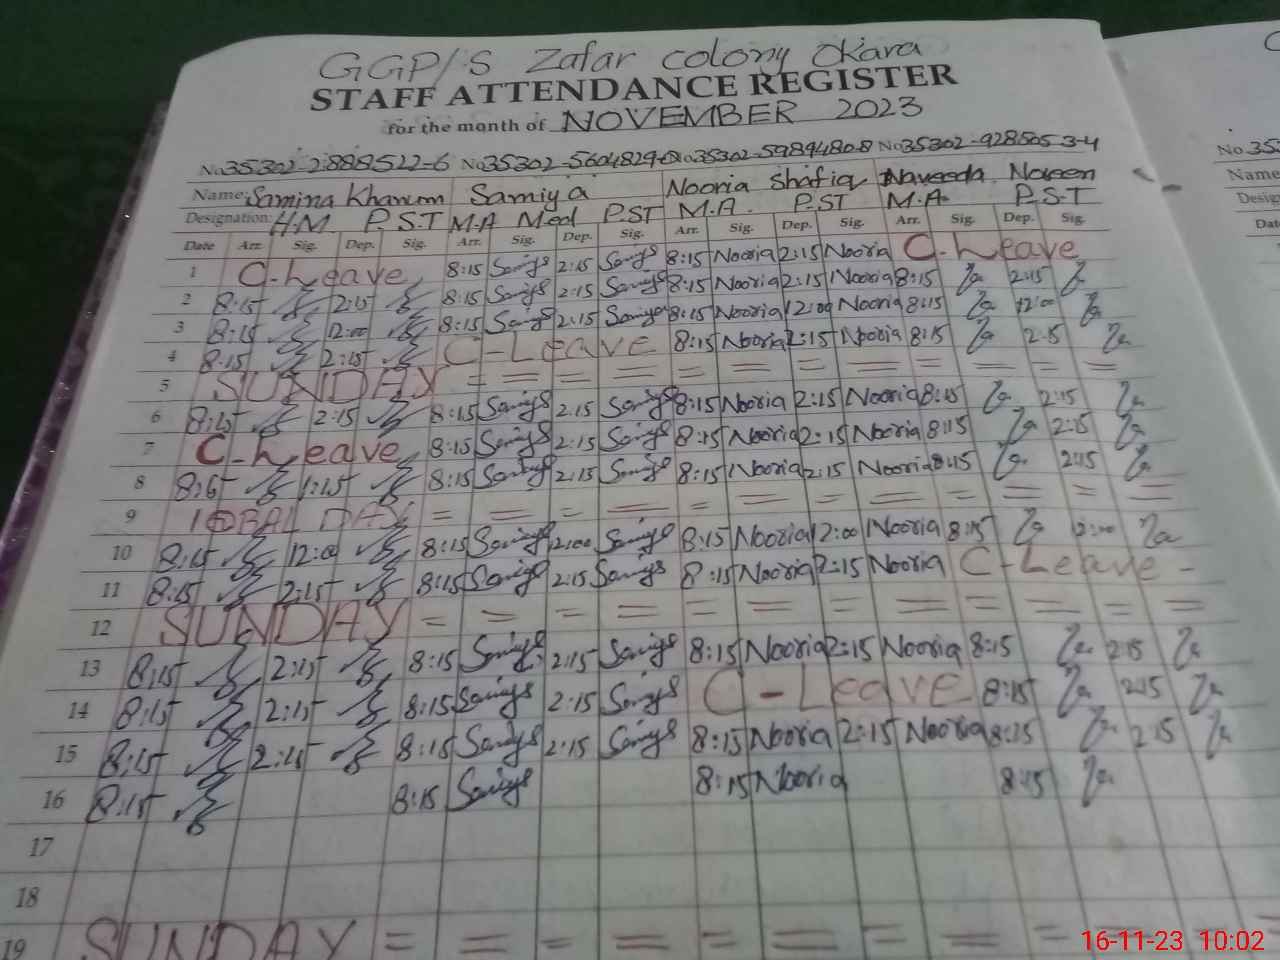 GGP/S Zafar colony Okara
STAFF ATTENDANCE REGISTER
for the month of NOVEMBER 2023
No 35302-2888522-6 No 35302-5604829-0 No 35302-5989480-8 No 35302-928505 3-4
No. 35
Name: Samina Khanum Samiya Nooria Shafiq Naveeda Noreen
Name
Designation: H.M P.S.T M.A Med PST M.A. P.ST M.A. P.S.T
Desig
Date Arr. Sig. Dep. Sig. Arr. Sig. Dep. Sig. Arr. Sig. Dep. Sig. Arr. Sig. Dep. Sig.
Dat
1 C-Leave 8:15 2:15 8:15 Nooria 2:15 Nooria C-Leave
2 8:15 2:15 8:15 2:15 8:15 Nooria 2:15 Nooria 8:15 2:15
3 8:15 12:00 8:15 2:15 8:15 Nooria 12:00 Nooria 8:15 12:00
4 8:15 2:15 C-Leave 8:15 Nooria 2:15 Nooria 8:15 2:15
5 SUNDAY = = = = = = = = = = = =
6 8:15 2:15 8:15 2:15 8:15 Nooria 2:15 Nooria 8:15 2:15
7 C-Leave 8:15 2:15 8:15 Nooria 2:15 Nooria 8:15 2:15
8 8:15 1:15 8:15 2:15 8:15 Nooria 2:15 Nooria 8:15 2:15
9 IQBAL DAY = = = = = = = = = = = =
10 8:15 12:00 8:15 2:00 8:15 Nooria 12:00 Nooria 8:15 2:00
11 8:15 2:15 8:15 2:15 8:15 Nooria 2:15 Nooria C-Leave -
12 SUNDAY = = = = = = = = = = = =
13 8:15 2:15 8:15 2:15 8:15 Nooria 2:15 Nooria 8:15 2:15
14 8:15 2:15 8:15 2:15 C-Leave 8:15 2:15
15 8:15 2:15 8:15 2:15 8:15 Nooria 2:15 Nooria 8:15 2:15
16 8:15 8:15 8:15 Nooria 8:15
17
18
19 SUNDAY = = = = = = = = = = =
16-11-23 10:02